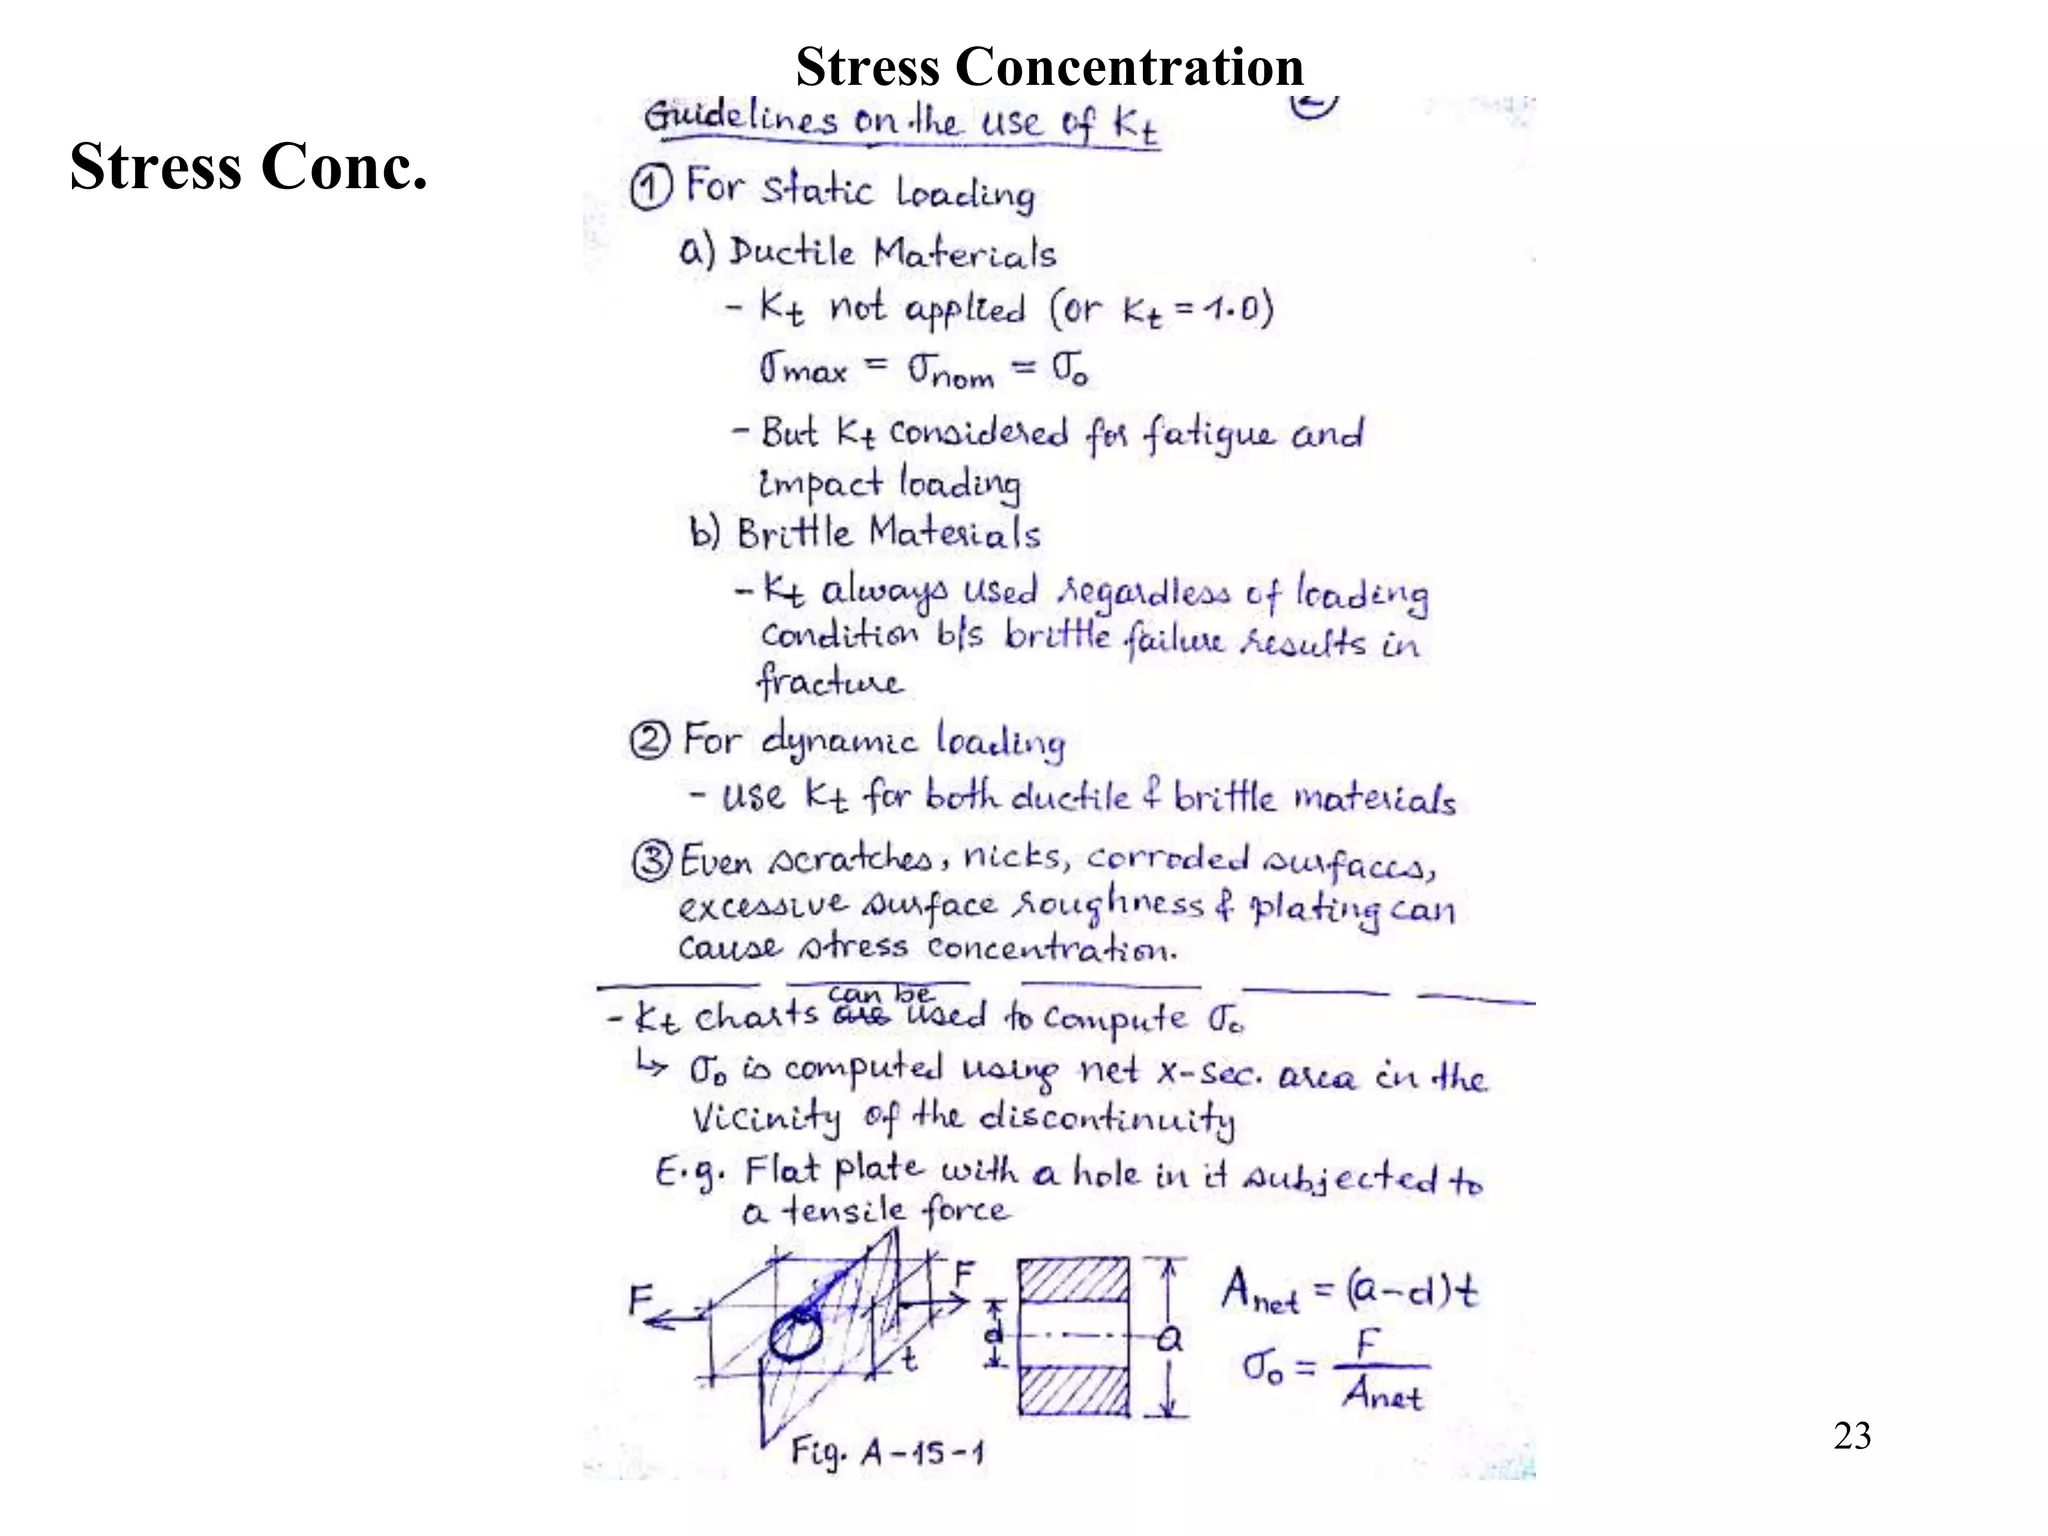 Stress Concentration
Stress Conc.
Guidelines on the use of Kt
②
① For static loading
a) Ductile Materials
- Kt not applied (or Kt = 1.0)
σmax = σnom = σo
- But Kt considered for fatigue and
impact loading
b) Brittle Materials
- Kt always used regardless of loading
condition b/s brittle failure results in
fracture
② For dynamic loading
- use Kt for both ductile & brittle materials
③ Even scratches, nicks, corroded surfaces,
excessive surface roughness & plating can
cause stress concentration.
- Kt charts can be used to compute σo
↳ σo is computed using net x-sec. area in the
vicinity of the discontinuity
E.g. Flat plate with a hole in it subjected to
a tensile force
F
F
t
d
a
Anet = (a-d)t
σo = F
Anet
Fig. A-15-1
23